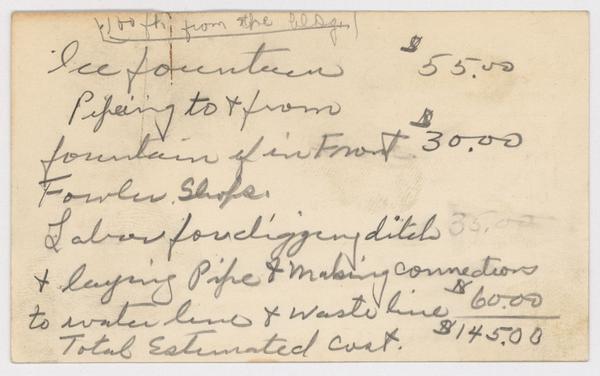 (100 ft. from the bldg.)
Ice fountain $55.00
Pipeing to & from
fountain if in Front $30.00
Fowler Shops.
Labor for digging ditch 35.00
& laying Pipe & Making connections
to water line & Waste line $60.00
Total Estimated Cost. $145.00